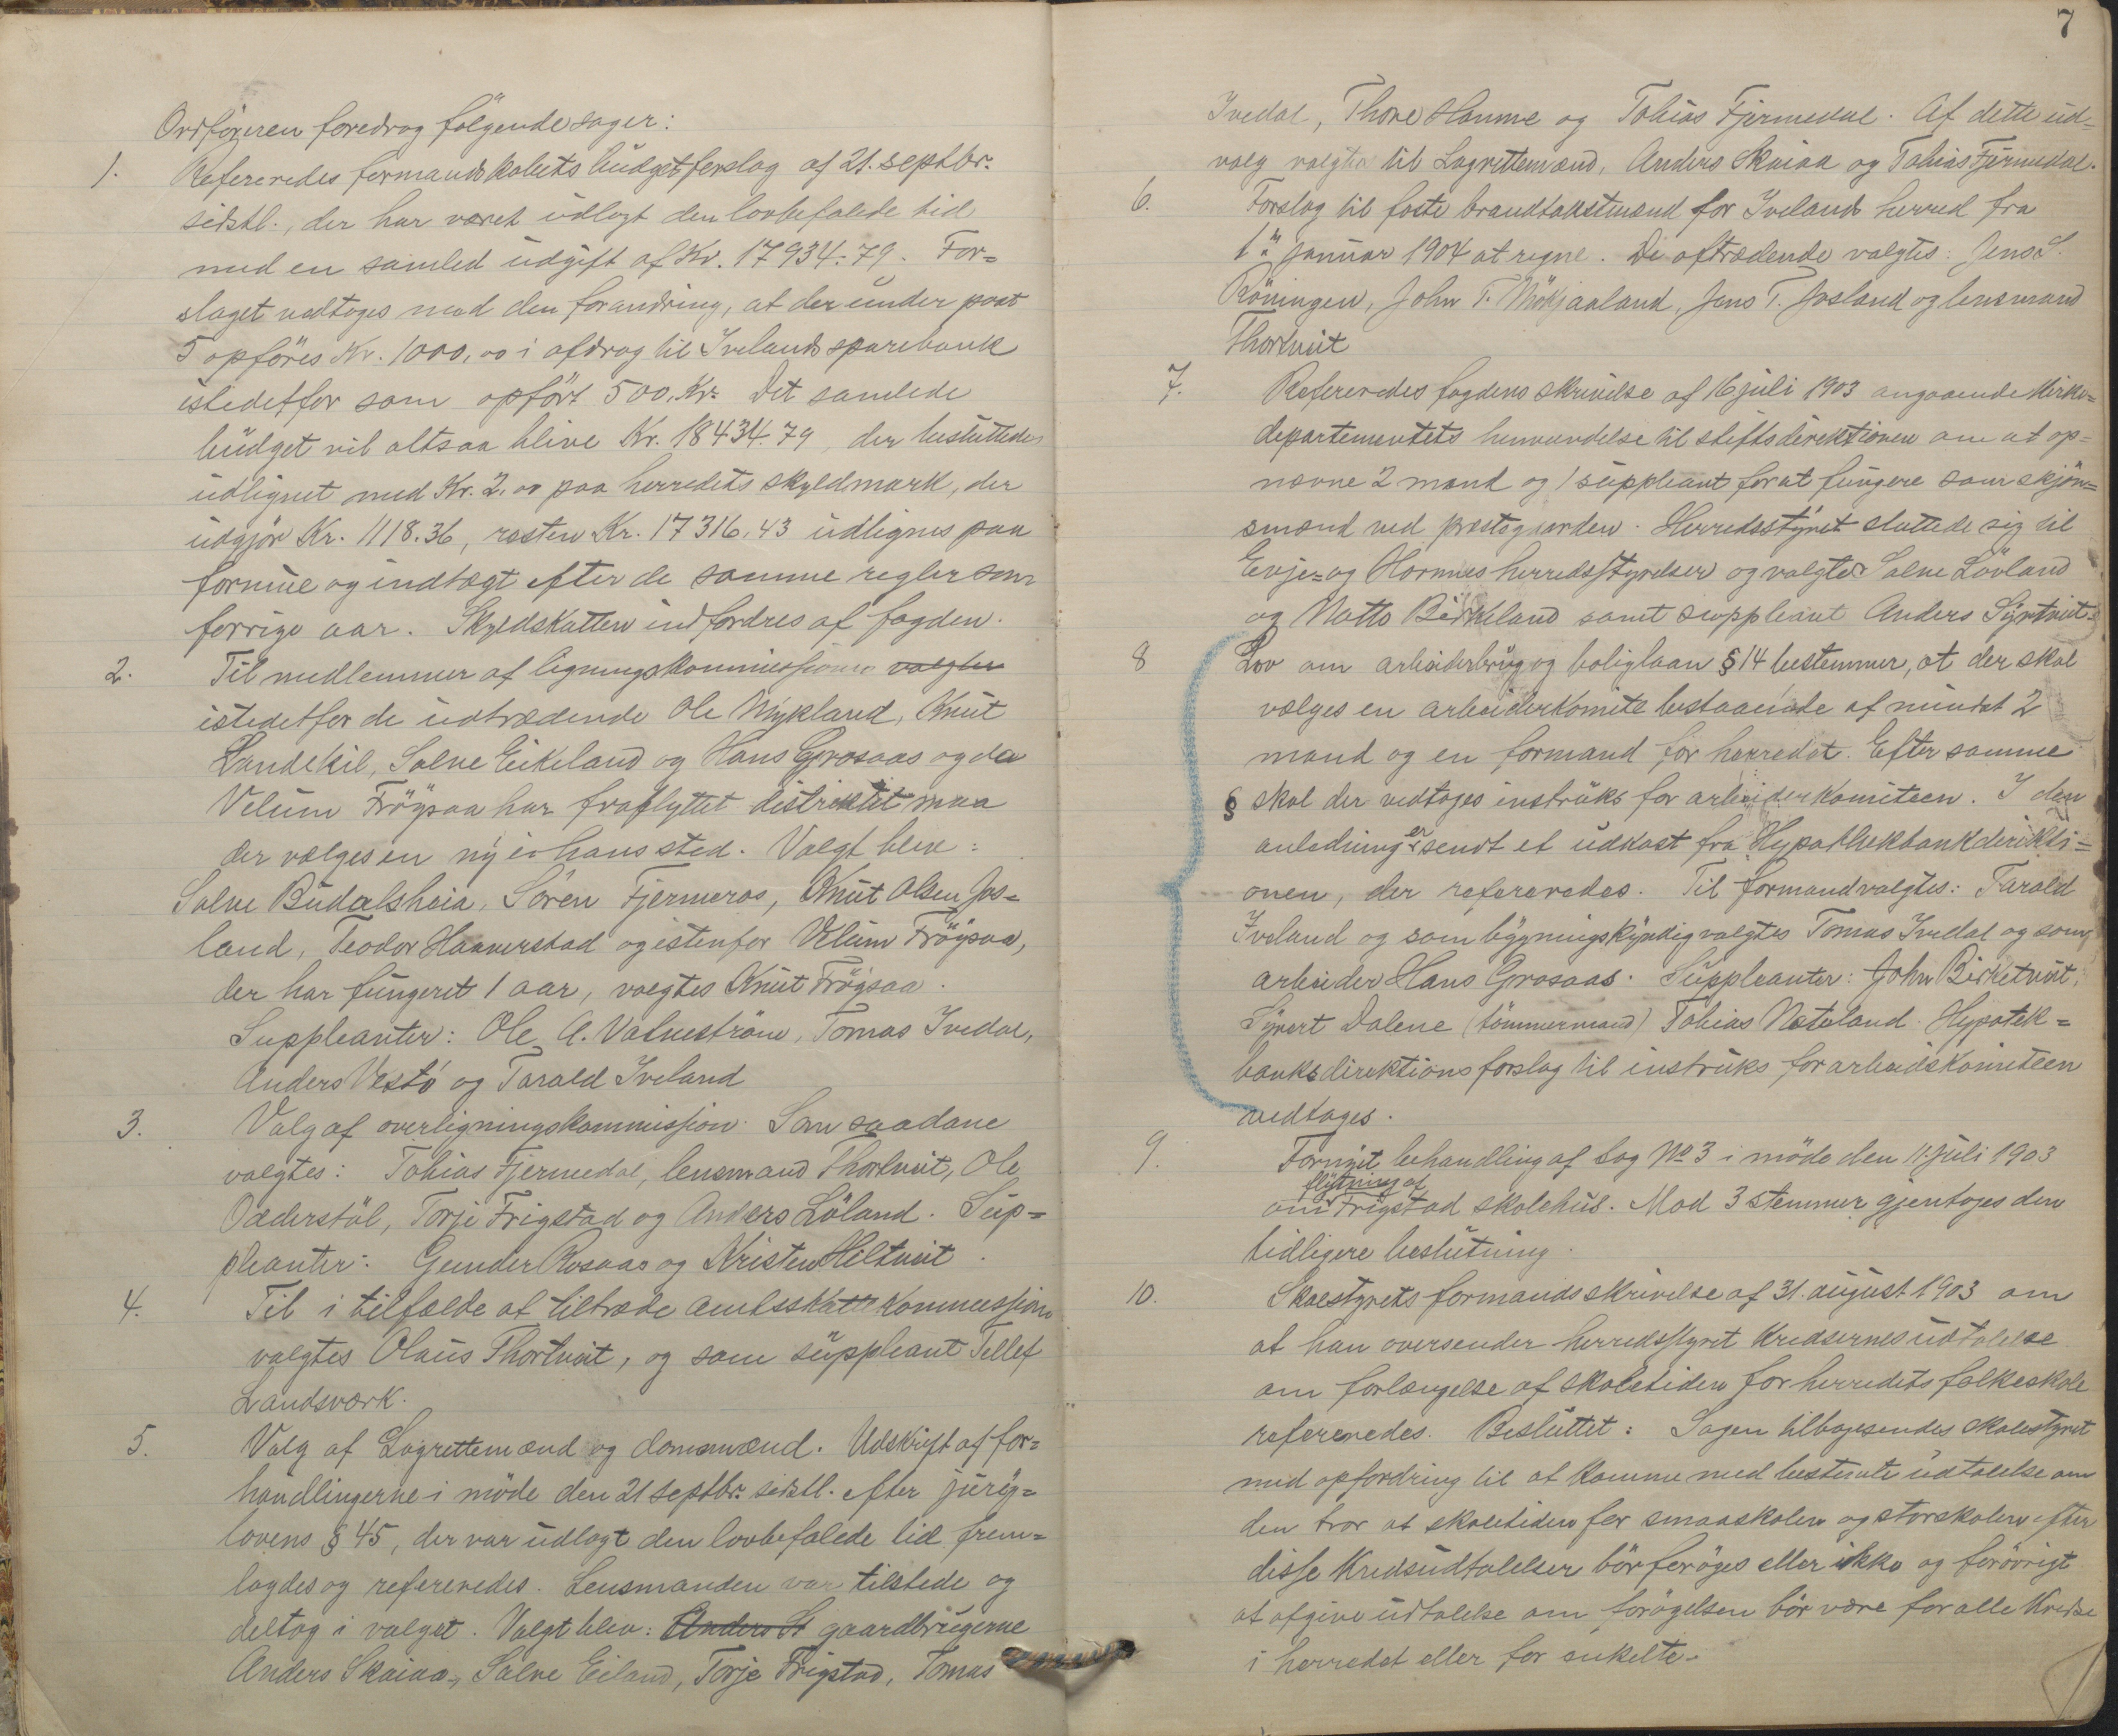 Ordføreren foredrog følgende sager:
1. Refereredes formandskabets budgetforslag af 21. septbr.
sidstl., der har været udlagt den lovbefalede tid
med en samled udgift af Kr. 17934.79. For=
slaget vedtoges med den forandring, at der under post
5 opføres Kr. 1000,00 i afdrag til Ivelands sparebank
istedetfor som opført 500. Kr. Det samlede
budget vil altsaa blive Kr. 18434.79, der besluttedes
udlignet med Kr. 2.00 paa herredets skyldmark, der
udgjør Kr. 1118.36, resten Kr. 17316.43 udlignes paa
formue og indtægt efter de samme regler som
forrige aar. Skyldskatten indfordres af fogden.
2. Til medlemmer af ligningskommissionen valgtes
istedetfor de udtrædende Ole Mykland, Knut
Landekil, Salve Eikeland og Hans Grosaas og da
Velum Frøysaa har fraflyttet distriktet maa
der vælges en ny i hans sted. Valgt blev:
Salve Budalsheia, Søren Fjermeros, Knut Olsen Jos=
land, Teodor Haaverstad og istenfor Velum Frøysaa,
der har fungeret 1 aar, valgtes Knut Frøysaa.
Suppleanter: Ole A. Vatnestrøm, Tomas Ivedal,
Anders Vestø og Tarald Iveland
3. Valg af overligningskommission. Som saadane
valgtes: Tobias Fjermedal, lensmand Thortveit, Ole
Odderstøl, Torje Frigstad og Anders Løland. Sup=
pleanter: Gunder Aasaas og Kristen Hiltveit.
4. Til i tilfælde at tiltræde amtsskattekommission
valgtes Olaus Thortveit, og som suppleant Tellef
Landsværk.
5. Valg af Lagrettemænd og domsmænd. Udskrift af for=
handlingerne i møde den 21 septbr. sidstl. efter jury=
lovens § 45, der var udlagt den lovbefalede tid frem=
lagdes og refereredes. Lensmanden var tilstede og
deltog i valget. Valgt blev: Anders S gaardbrugerne
Anders Skaiaa, Salve Eiland, Torje Frigstad, Tomas
7
Ivedal, Thore Hamme og Tobias Fjermedal. Af dette ud=
valg valgtes til Lagrettemænd, Anders Skaiaa og Tobias Fjermedal.
6. Forslag til faste brandtakstmænd for Ivelands herred fra
1ste januar 1904 at regne. De aftrædende valgtes: Jens S.
Røiningen, John T. Møkjaaland, Jens T. Josland og lensmand
Thortveit
7. Refereredes fogdens skrivelse af 16 juli 1903 angaaende Kirke=
departementets henvendelse til stiftsdirektionen om at op=
nævne 2 mænd og 1 suppleant for at fungere som skjøn=
smænd ved præstegaarden. Herredsstyret sluttede sig til
Evje= og Hornnes herredsstyrelser og valgtes Salve Løvland
og Matts Birkeland samt suppleant Anders Syrtveit.
8 Lov om arbeiderbrug og boliglaan § 14 bestemmer, at der skal
vælges en arbeiderkomite bestaaende af mindst 2
mænd og en formand for herredet. Efter samme
§ skal der vedtages instruks for arbeiderkomiteen. I den
anledning er sendt et udkast fra Hypothekbankdirekti=
onen, der refereredes. Til formand valgtes: Tarald
Iveland og som bygningskyndig valgtes Tomas Ivedal og som
arbeider Hans Grosaas. Suppleanter: John Birketveit,
Syvert Dalene (tømmermand) Tobias Nateland. Hypotek=
banksdirektions forslag til instruks for arbeidskomiteen
vedtages.
9. Fornyit behandling af Sag No 3 i møde den 11. juli 1903
flytning af
om Frigstad skolehus. Mod 3 stemmer gjentoges den
tidligere beslutning.
10. Skolestyrets formands skrivelse af 31. august 1903 om
at han oversender herredsstyret Kredsernes udtalelse
om forlængelse af skoletiden for herredets folkeskole
refereredes. Besluttet: Sagen tilbagesendes skolestyret
med opfordring til at komme med bestemte udtalelse om
den tror at skoletiden for smaaskolen og storskolen efter
disse Kredsudtalelser bør forøges eller ikke og forøvrigt
at afgive udtalelse om forøgelsen bør være for alle Kredse
i herredet eller for enkelte.